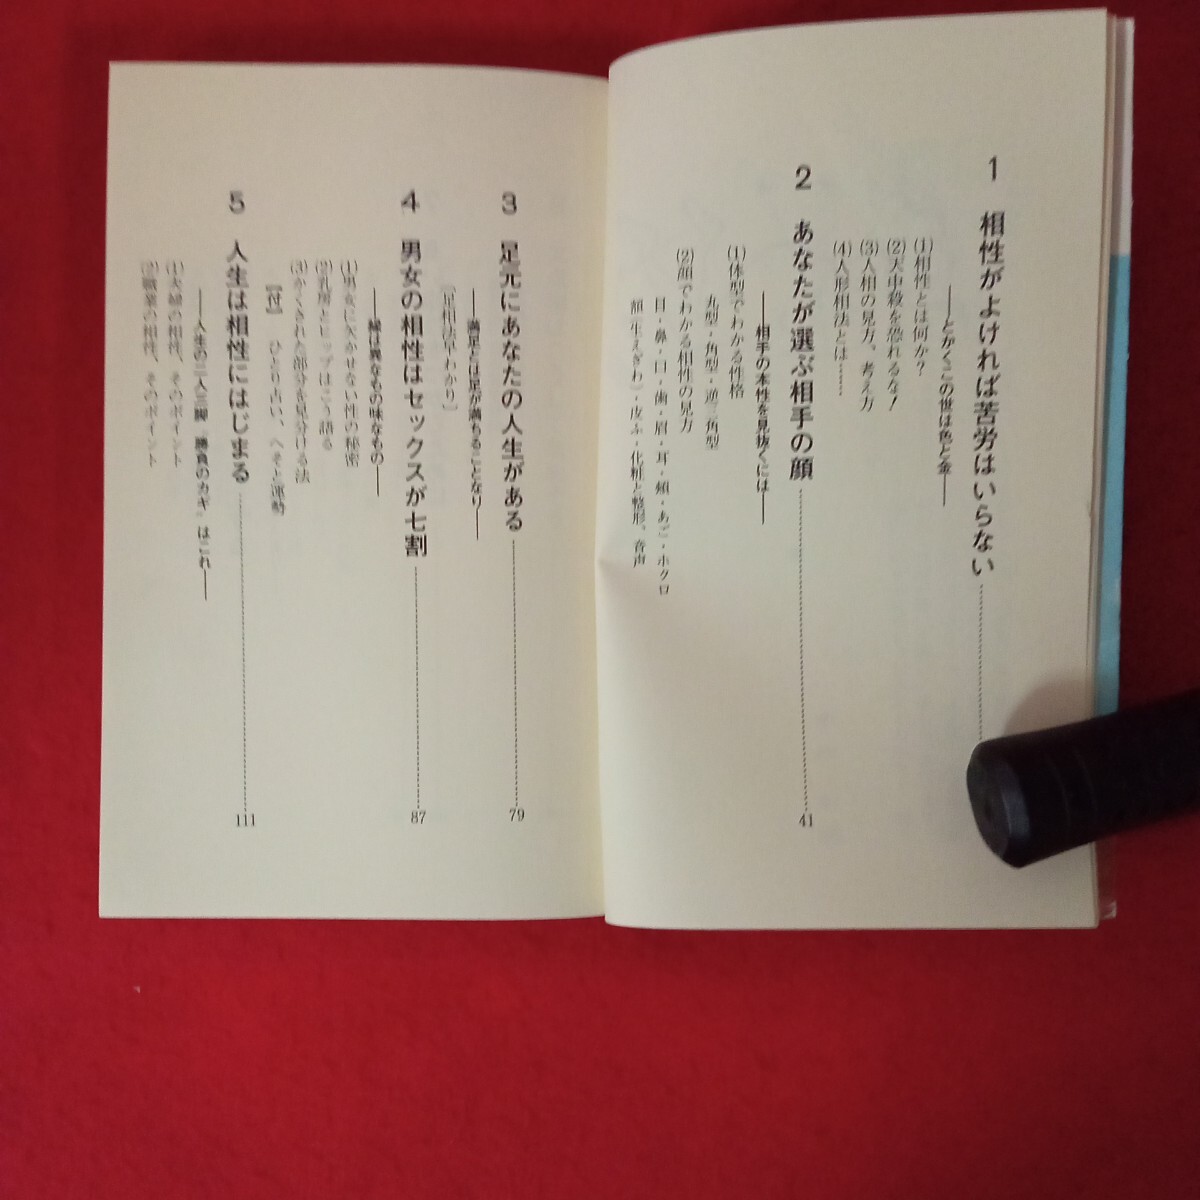 1 相性がよければ苦労はいらない
――とかくこの世は色と金――
(1)相性とは何か?
(2)天中殺を恐れるな!
(3)人相の見方、考え方
(4)人形相法とは……
2 あなたが選ぶ相手の顔 41
――相手の本性を見抜くには――
(1)体型でわかる性格
丸型・角型・逆三角型
(2)顔でわかる相性の見方
目・鼻・口・歯・眉・耳・頬・あご・ホクロ
額(生えぎわ)・皮ふ・化粧と整形、音声
3 足元にあなたの人生がある 79
――満足とは足が満ちることなり――
[足相法早わかり]
4 男女の相性はセックスが七割 87
――縁は異なもの味なもの――
(1)男女に欠かせない性の秘密
(2)乳房とヒップはこう語る
(3)かくされた部分を見分ける法
[付] ひとり占い、へそと運勢
5 人生は相性にはじまる 111
――人生の二人三脚 勝負のカギ〟はこれ――
(1)夫婦の相性、そのポイント
(2)職業の相性、そのポイント